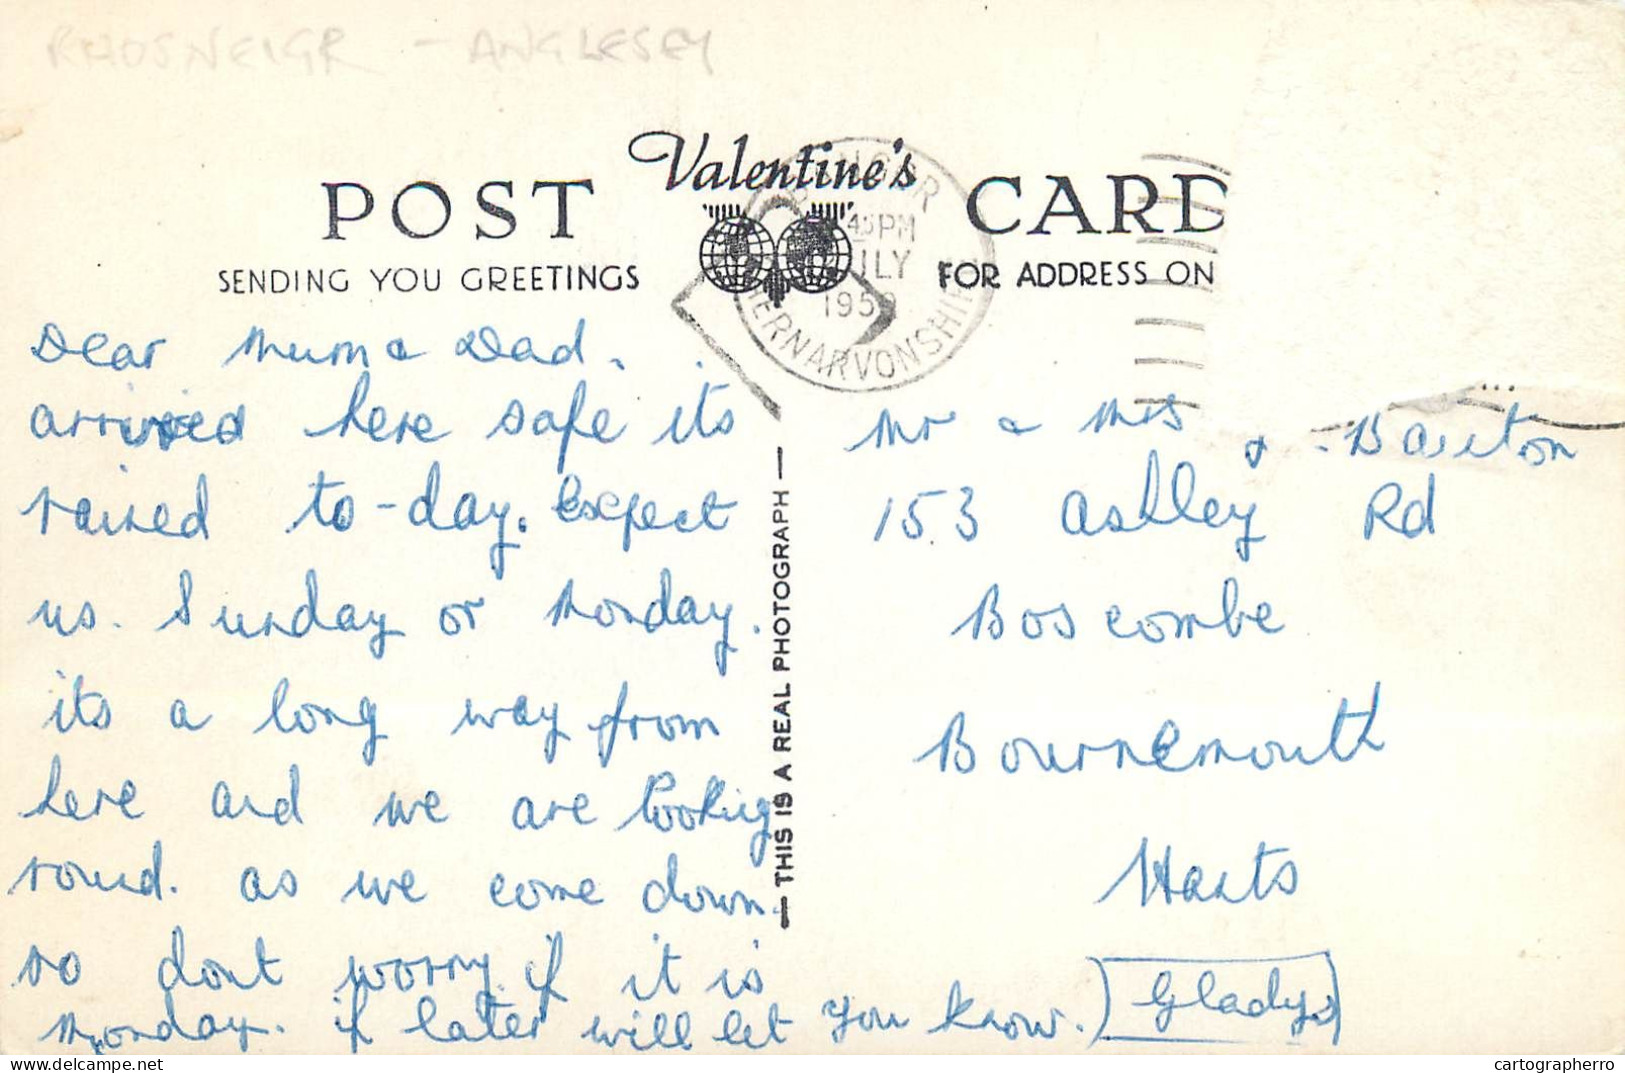 RHOSNEIGR - ANGLESEY
Valentine's
POST CARD
SENDING YOU GREETINGS
FOR ADDRESS ON
BANGOR
45PM
1959
CAERNARVONSHIRE
Dear Mum & Dad.
arrived here safe its
rained to-day. Expect
us. Sunday or Monday.
its a long way from
here and we are looking
round. as we come down.
so dont worry if it is
Monday. if later will let you know.) Gladys
— THIS IS A REAL PHOTOGRAPH —
Mr & Mrs Barton
153 Ashley Rd
Boscombe
Bournemouth
Hants
cartographerro